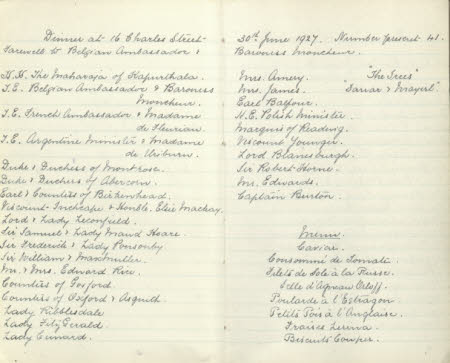 Dinner at 16 Charles Street
Farewell to Belgian Ambassador &
H.H. The Maharaja of Kapurthala.
T.E. Belgian Ambassador & Baroness
Moncheur.
T.E. French Ambassador & Madame
de Fleuriau.
T.E. Argentine Minister & Madame
de Uriburu.
Duke & Duchess of Montrose.
Duke & Duchess of Abercorn.
Earl & Countess of Birkenhead.
Viscount Inchcape & Honble. Elsie Mackay.
Lord & Lady Leconfield.
Sir Samuel & Lady Maud Hoare.
Sir Frederick & Lady Ponsonby
Sir William & Max Muller.
Mr. & Mrs. Edward Rice.
Countess of Gosford.
Countess of Oxford & Asquith.
Lady Ribblesdale
Lady FitzGerald.
Lady Cunard.
30th June 1927. Number present 41.
Baroness Moncheur.
Mrs. Amery. "The Trees"
Mrs. James. "Sarrar & Mayerl."
Earl Balfour.
H.E. Polish Minister.
Marquis of Reading.
Viscount Younger.
Lord Blanesburgh.
Sir Robert Horne.
Mr. Edwards.
Captain Burton.
Menu.
Caviar.
Consommé de Tomate
Filets de Sole à la Russe.
Selle d'Agneau Orloff.
Poularde à l'Estragon
Petits Pois à l'Anglaise.
Fraises
Biscuits Cowper.